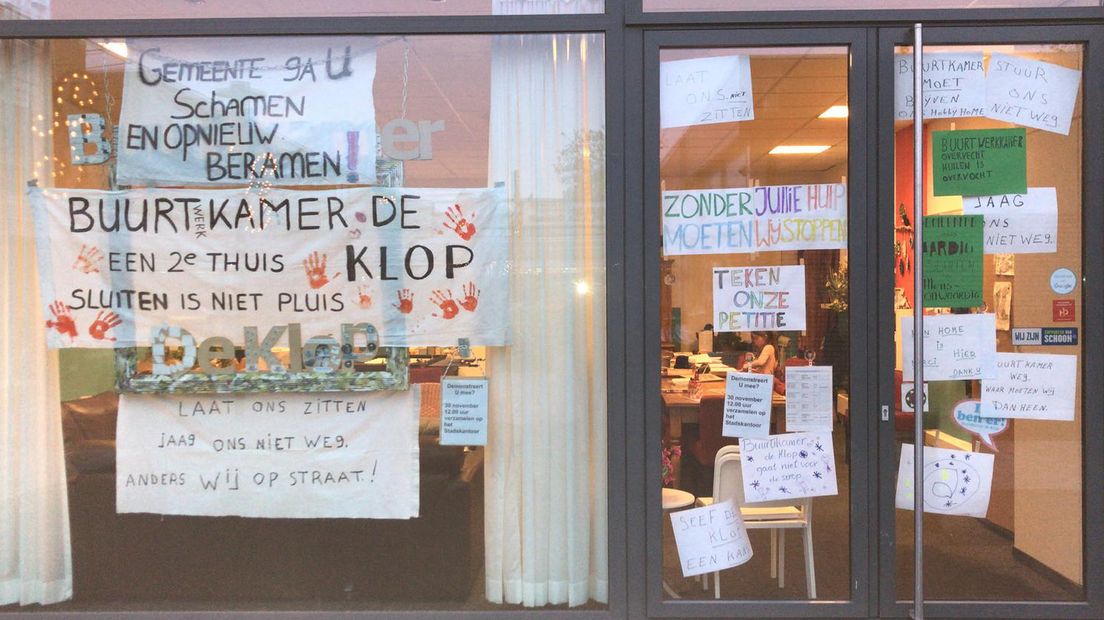 GEMEENTE GA U
SCHAMEN
EN OPNIEUW
BERAMEN!
BUURT WERK KAMER DE
EEN 2e THUIS KLOP
SLUITEN IS NIET PLUIS
De Klop
LAAT ONS ZITTEN
JAAG ONS NIET WEG.
ANDERS WIJ OP STRAAT!
Demonstreert
U mee?
30 november
12.00 uur
verzamelen op
het
Stadskantoor
LAAT
ONS NIET
ZITTEN
ZONDER JULLIE HULP
MOETEN WIJ STOPPEN
TEKEN
ONZE
PETITIE
Demonstreert
U mee?
30 november
12.00 uur
verzamelen op
het
Stadskantoor
BUURTKAMER
de Klop
gaat niet voor
de strop
GEEF DE
KLOP
EEN KANS
BUURTKAMER
MOET
BLYVEN
ONS HobbY HOME
STUUR
ONS
NIET WEG.
BUURTWERKKAMER
OVERVECHT
HUILEN IS
OVERVOCHT
JAAG
ONS
NIET WEG.
GEMEENTE
AARDIG
MENS-
ONWAARDIG
HOME
is
HIER
DANK U
WIJ ZIJN
SCHOON
BUURTKAMER
WEG.
WAAR MOETEN WIJ
DAN HEEN.
ben er!